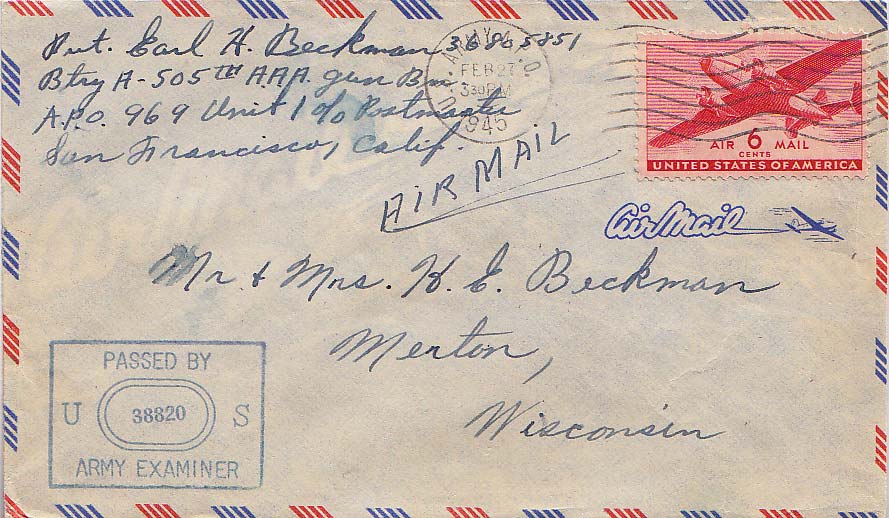 Pvt. Earl H. Beckman 36805851
Btry A-505th A.A.A. gun Bn
A.P.O. 969 Unit 1 c/o Postmaster
San Francisco, Calif.
U.S. ARMY A.P.O.
FEB 27
3 30 PM
1945
AIR 6 MAIL
CENTS
UNITED STATES OF AMERICA
AIR MAIL
Air Mail
Mr. & Mrs. H. E. Beckman
Merton,
Wisconsin
PASSED BY
U 38820 S
ARMY EXAMINER